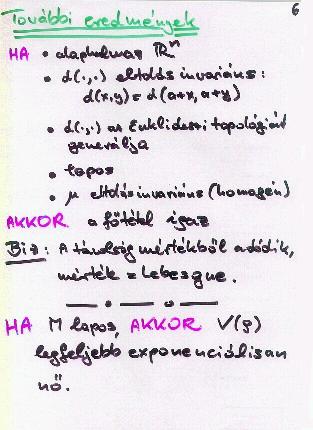 További eredmények
6
HA • alaphalmaz ℝⁿ
• d(·,·) eltolás invariáns:
d(x,y) = d(a+x, a+y)
• d(·,·) az Euklideszi topológiát
generálja
• lapos
• μ eltolásinvariáns (homogén)
AKKOR a főtétel igaz
Biz: A távolság mértékből adódik,
mérték = Lebesgue.
HA M lapos, AKKOR V(ρ)
legfeljebb exponenciálisan
nő.